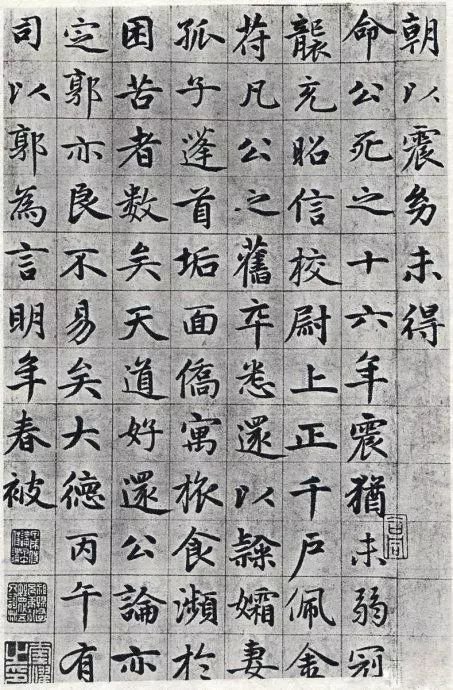 朝以震㓜未得
命公死之十六年震猶未弱冠
襲充昭信校尉上正千戶佩金
苻凡公之舊卒悉還以隸孀妻
孤子蓬首垢面僑寓旅食瀕於
困苦者数矣天道好還公論亦
定郭亦良不易矣大德丙午有
司以郭為言明年春被